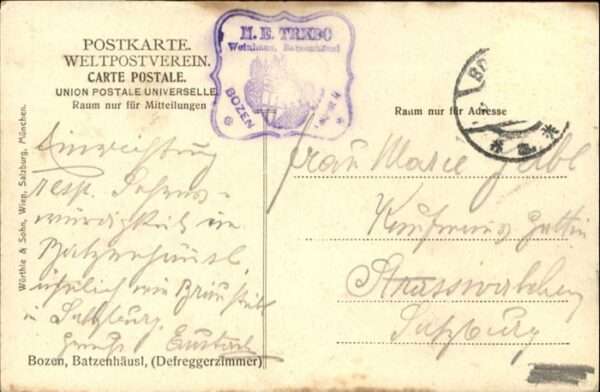 POSTKARTE.
WELTPOSTVEREIN.
CARTE POSTALE.
UNION POSTALE UNIVERSELLE.
Raum nur für Mitteilungen
Raum nur für Adresse
Weinhaus, Batzenhäusl
BOZEN
Einrichtung
resp. Sehens-
würdigkeit im
Batzenhäusl,
ähnlich wie Bräustübl
in Salzburg.
Frau Marie
Kaufmanns Gattin
Strasswalchen
Salzburg
Würthle & Sohn, Wien, Salzburg, München.
Bozen, Batzenhäusl, (Defreggerzimmer)